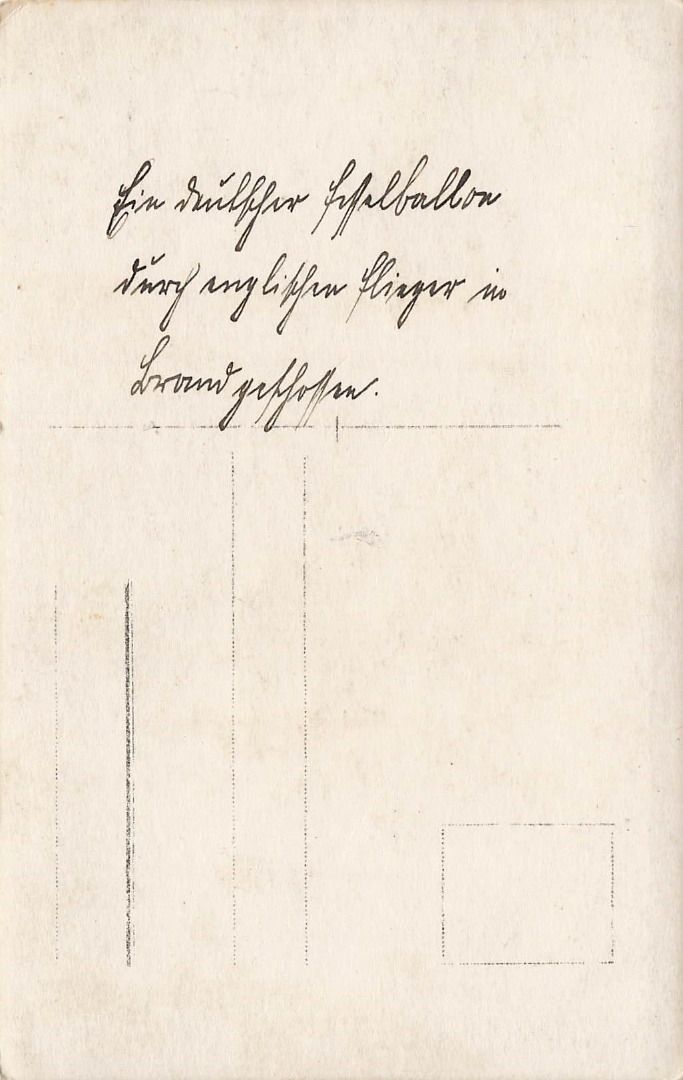 Ein deutscher Fesselballon
durch englischen Flieger in
Brand geschossen.